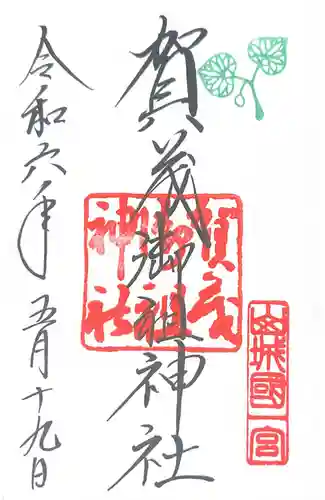 山城國一宮
賀茂御祖神社
賀茂御祖神社
令和六年 五月十九日